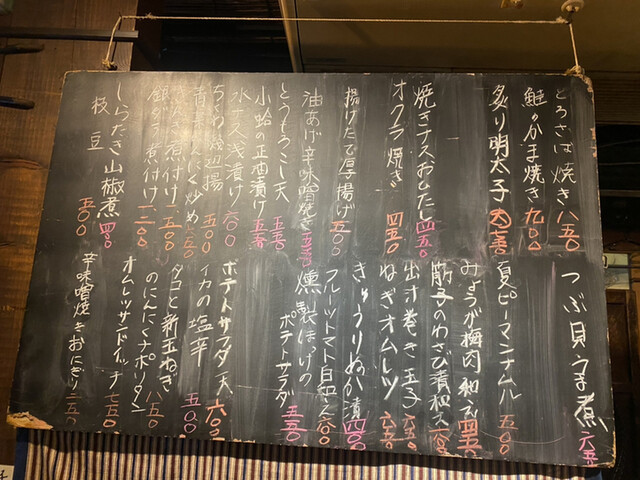 とろさば焼き 八五〇
鮭のかま焼き 九〇〇
炙り明太子
焼きナスおひたし 四五〇
オクラ焼き 四五〇
揚げたて厚揚げ 五〇〇
油あげ辛味噌焼き 五五〇
とうもろこし天 五五〇
小蛤の正油漬け 五五〇
水ナス浅漬け 六〇〇
ちくわ磯辺揚 五〇〇
にんにく炒め
煮付け 一五〇〇
煮付け 一二〇〇
しらたき山椒煮 四〇〇
枝豆 五〇〇
つぶ貝うま煮 六五〇
夏ピーマンナムル 五〇〇
みょうが梅肉和え 四五〇
筋子のわさび漬和え
出汁巻き玉子 六五〇
ねぎオムレツ 六五〇
きゅうりぬか漬 四〇〇
フルーツトマト白和え 六〇〇
燻製ほっけのポテトサラダ 五五〇
ポテトサラダ天 六〇〇
イカの塩辛 五〇〇
タコと新玉ねぎ
のにんにくナポータン 八五〇
オムレツサンドイッチ 七五〇
辛味噌焼きおにぎり 二五〇